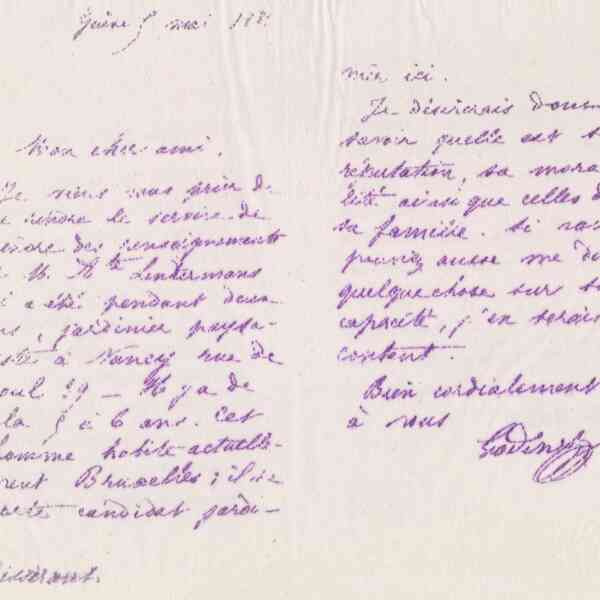 mai 188
Mon cher ami,
Je viens vous prier de
rendre le service de
prendre des renseignements
M. Lindermans
i a été pendant deux
ns, jardinier paysa-
à Nancy rue de
oul 29 — Il y a de
la 5 à 6 ans. Cet
homme habite actuelle-
ment Bruxelles ; il se
candidat jardi-
nier ici.
Je désirerais donc
savoir quelle est s
réputation, sa mora
lité ainsi que celles d
sa famille. Si vo
pouviez aussi me di
quelque chose sur s
capacité, j'en serais
content.
Bien cordialement
à vous